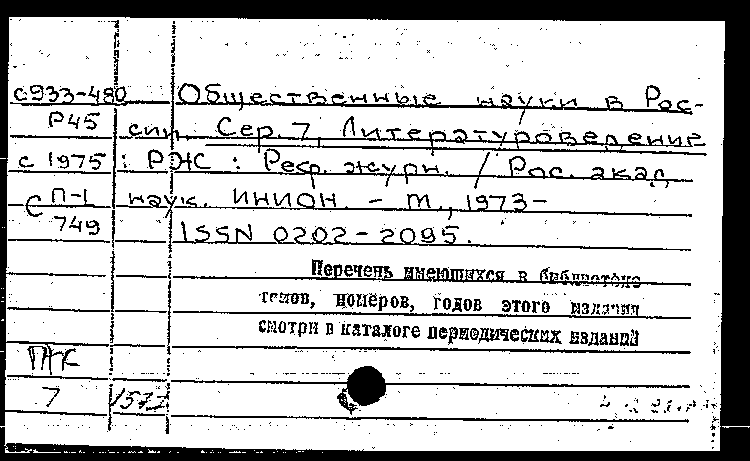 с933-480 Общественные науки в Рос-
Р45 сии. Сер. 7, Литературоведение
с 1975 : РЖ : Реф. журн. / Рос. акад
С П-1 наук. ИНИОН. - М., 1973-
749 ISSN 0202-2095.
Перечень имеющихся в библиотеке
томов, номеров, годов этого издания
смотри в каталоге периодических изданий
ПК
7 1571